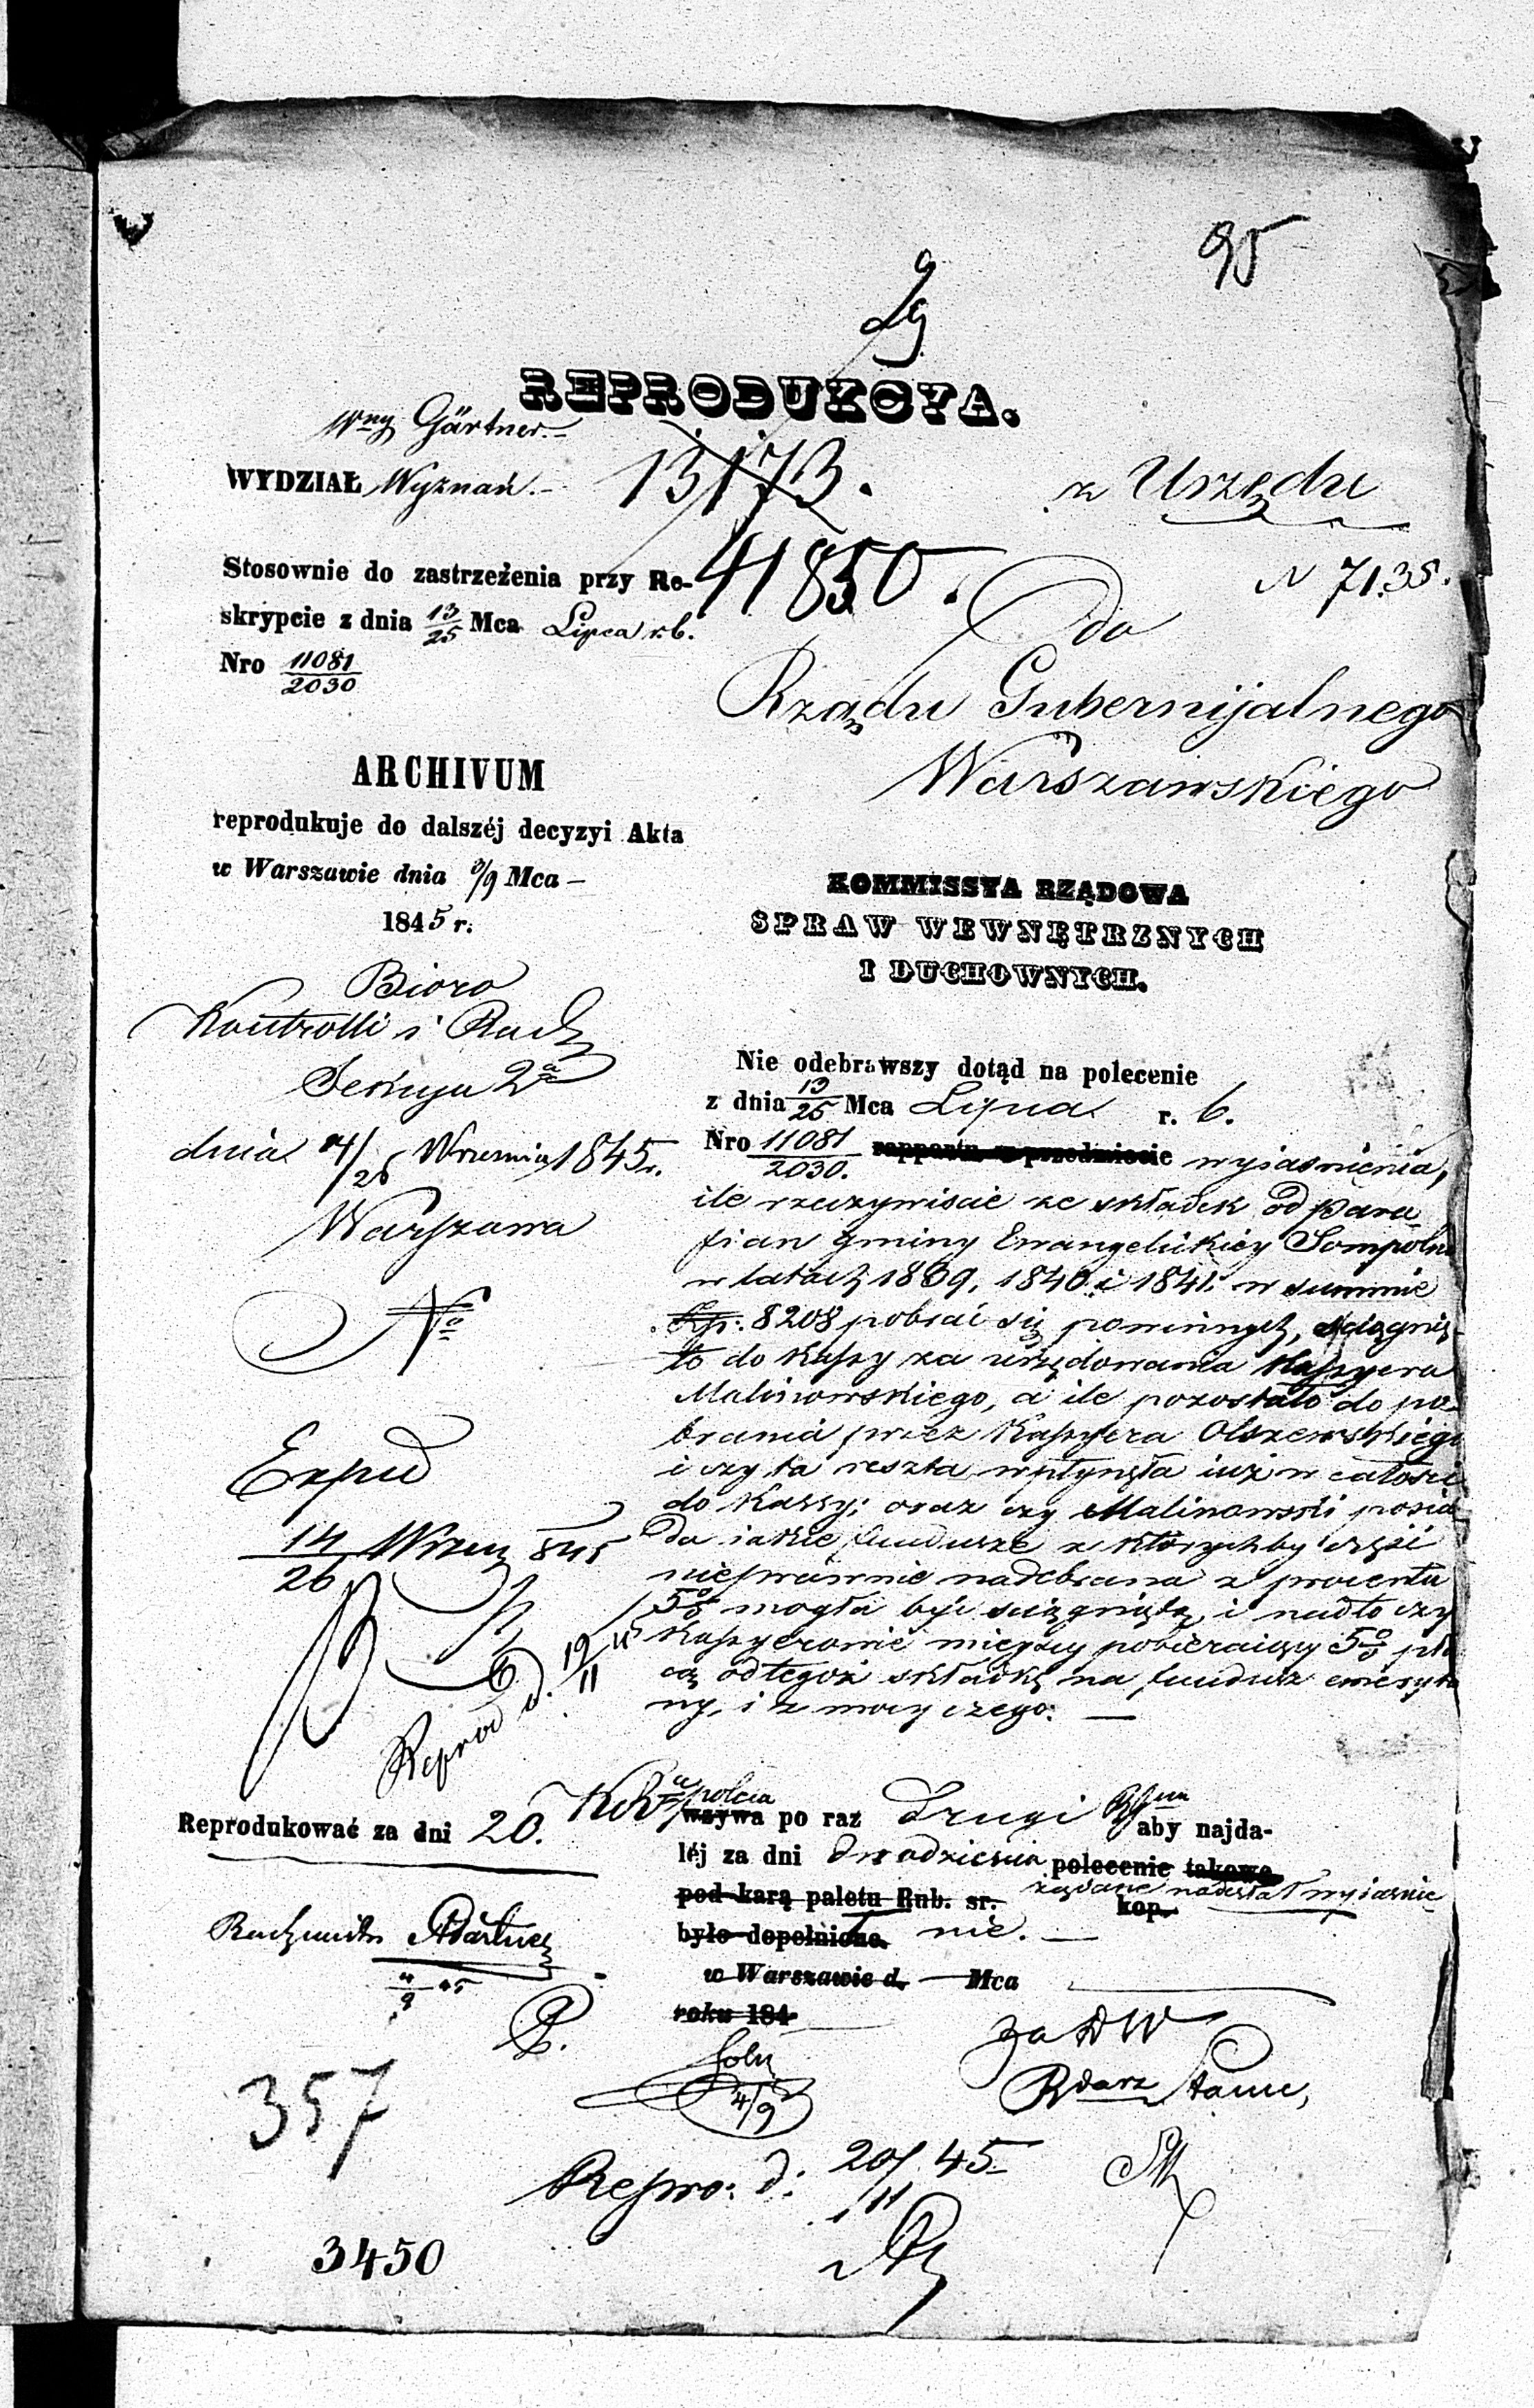 95
REPRODUKCYA.
Wny Gärtner.
WYDZIAŁ Wyznań.
13173.
z Urzędu
41850.
N 7135.
Stosownie do zastrzeżenia przy Re-
skrypcie z dnia 13/25 Mca Lipca r. b.
Nro 11081/2030
do
Rządu Gubernijalnego
Warszawskiego
ARCHIVUM
reprodukuje do dalszéj decyzyi Akta
w Warszawie dnia 3/9 Mca —
1845 r.
Bióro
Kontrolli i Rach
Sekcya 2a
dnia 4/26 Września 1845 r.
Warszawa
No
Exped
14/26 Wrześ 845
Reprod d. 19/11 45
Reprodukować za dni 20.
Rachmistrz
4/9 45
357
3450
KOMMISSYA RZĄDOWA
SPRAW WEWNĘTRZNYCH
I DUCHOWNYCH.
Nie odebrawszy dotąd na polecenie
z dnia 13/25 Mca Lipca r. b.
Nro 11081/2030. rapportu w przedmiocie wyiaśnienia,
ile rzeczywiście ze składek od para-
fian gminy Ewangelickiey Sompolno
w latach 1839, 1840 i 1841. w summie
Złp: 8208 pobrać się powinnych, ściągnię-
to do Kassy za urzędowania Kassyera
Malinowskiego, a ile pozostało do po-
brania przez Kassyera Olszewskiego
i czy ta reszta wpłynęła iuż w całości
do Kassy; oraz czy Malinowski posia-
da iakie fundusze z którychby część
nieprawnie nadebrana z procentu
5% mogła być ściągniętą, i nadto czy
Kassyerowie mieyscy pobieraiący 5% pła-
cą od tegoż składkę na fundusz emeryta
ny, i z mocy czego. —
KR polca
wzywa po raz drugi aby najda-
léj za dni dwadzieścia polecenie takowe
żądane nadesłał wyiaśnie
pod karą paletu Rub. sr. kop.
było dopełnione. nie. —
w Warszawie d. — Mca
roku 184
za DW
4/9
Repro: d: 20/11 45